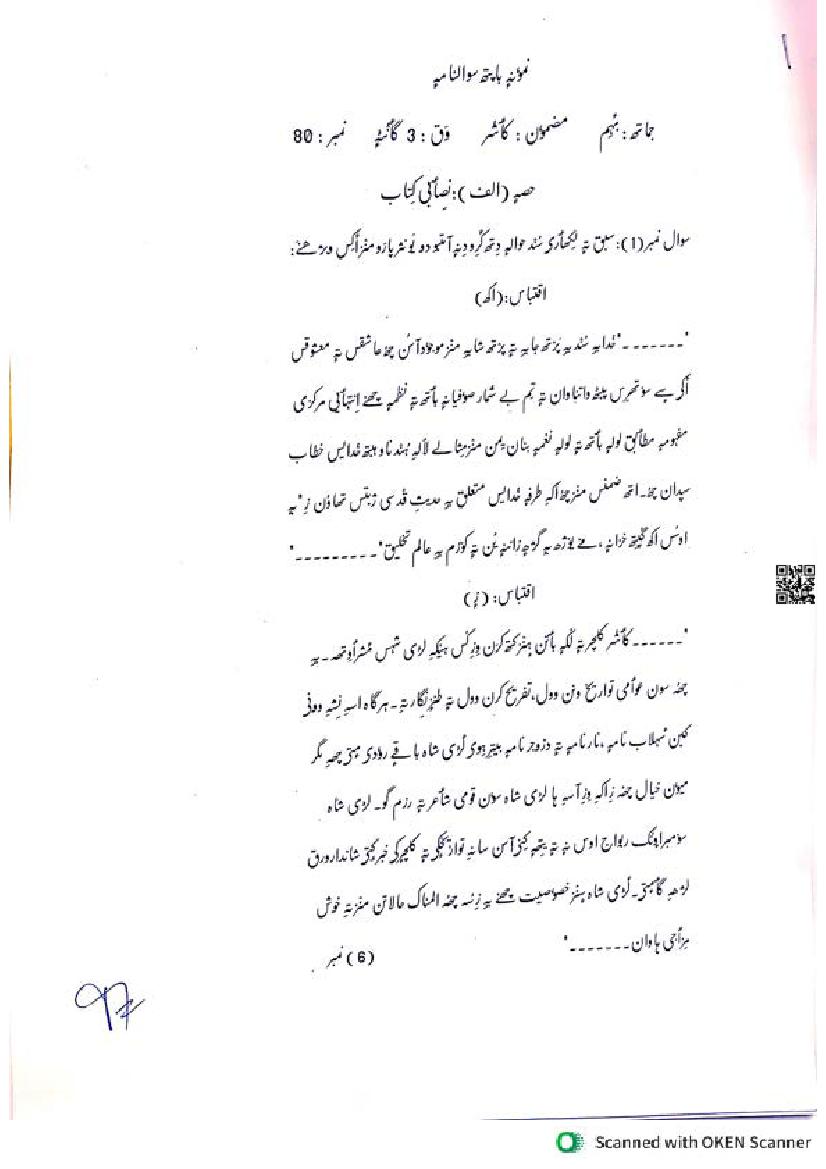 نمونہٕ باپتھ سوالنامہٕ
جماتھ: بٔہِم مضموٗن: کٲشُر وَق: 3 گٲنٹہٕ نمبر: 80
حصہٕ (الف): نصٲبی کِتاب
سوال نمبر (1): سبق تہٕ لکھأرۍ سُند حوالہٕ دِتھ کٔرِو دِنہٕ آمتیو دۄیو نثر پارو منٛز أکِس ویژھنے:
اقتباس: (اکھ)
"۔۔۔۔۔۔۔" خدایہٕ سُند یہِ پرٛتھ جایہِ تہٕ پرٛتھ شایہِ منٛز موجوٗد آسُن چھُ عاشقس تہٕ معشوقس
أکی سے سوتھرس پیٹھ واتناوان تہٕ تِم بے شمار صوفیانہٕ بٲتھ تہٕ نظمہٕ چھےٚ اِنتہٲیی مرکزی
مفہومہٕ مطٲبق لولہٕ بٲتھ تہٕ لولہٕ نغمہٕ بنان یِمن منٛز مثالے لالہٕ ہُند ناو ہیتھ خدایس خطاب
سپدان چھُ۔ اتھ ضمنس منٛز چھُ اکہِ طرفہٕ خدایس متعلق یہِ حدیثِ قدسی ذہنس تھاوُن زِ "بہٕ
اوسُس اکھ کھٹِتھ خزانہٕ، مےٚ یوٗژھ بہٕ گژھہٕ زاننہٕ یُن تہٕ کوٚرُم یہِ عالم تخلیق"۔۔۔۔۔۔۔۔۔"
اقتباس: (زٕ)
"۔۔۔۔۔۔ کٲشر کلچر تہٕ لُکہٕ بٲتن ہنٛز کتھ کرن وِزِ کُس ہیکہِ لڑی شہس مٔشرٲوتھ۔ یہِ
چھُ سون عوٲمی توٲریخ ونن وول، تفریح کرن وول تہٕ طنز نِگار تہٕ۔ ہرگاہ اسہِ نِشہِ ووٚنۍ
کینٛہہ سٔہلاب نامہٕ، نار نامہٕ تہٕ دزوجر نامہٕ بیترِ ہِوۍ لڑی شاہ باقٕے روٗدۍ مٕتۍ چھِ مگر
میون خیال چھُ زِ اکہِ وِزِ آسہِ ہا لڑی شاہ سون قومی شٲعر تہٕ رزم گو۔ لڑی شاہ
سۄمبراونُک رِواج اوس نہٕ تہٕ یِتھہٕ کنۍ آسن سانہِ توٲریخکۍ تہٕ کلچرکۍ خبر کٟتۍ شاندار ورق
لۄرِ گٲمٕتۍ۔ لڑی شاہ ہنٛز خصوصیت چھےٚ یہِ زِ یہِ چھُ المناک حالاتن منٛز تہٕ خوش
مِزٲجی ہاوان۔۔۔۔۔۔۔"
(6) نمبر
Scanned with OKEN Scanner